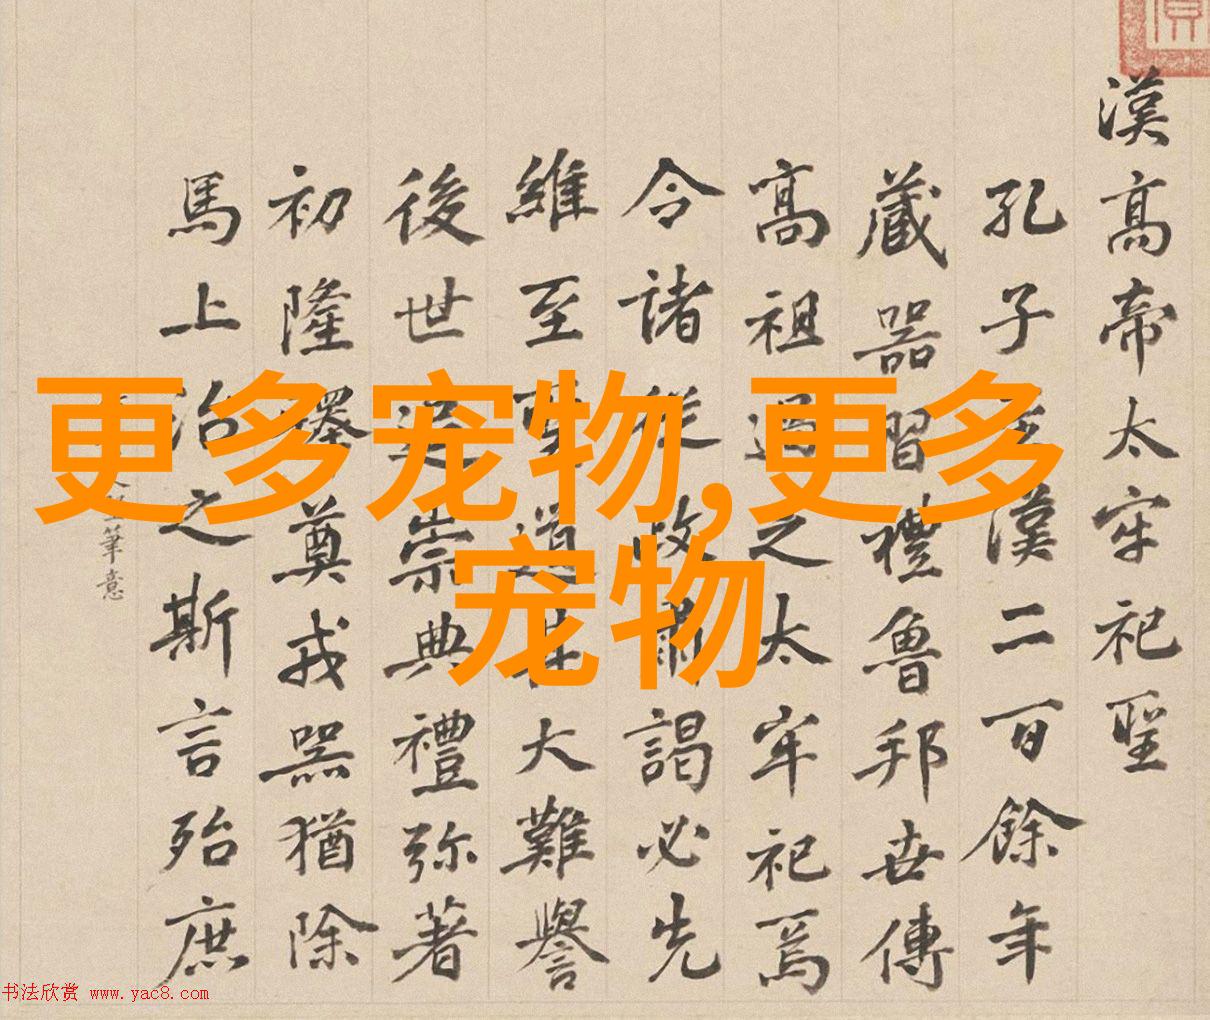 更多宠物,更多
宠物
漢高帝太牢祀聖
孔子漢二百餘年
藏器習禮魯邦世傳
高祖過之太牢祀焉
令諸從政肅謁必先
維至道其大難譽
後世崇典禮弥著
初隆釋奠戎器猶除
馬上治之斯言殆庶
筆意
书法欣赏 www.yac8.com